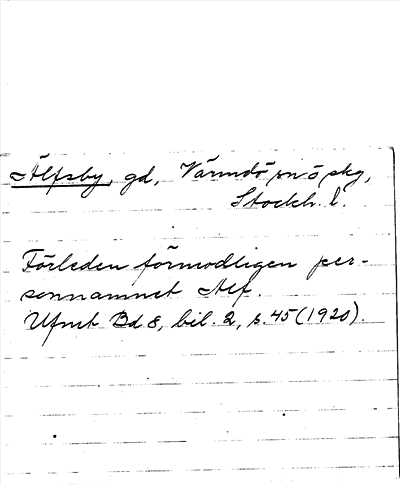 Älfsby, gd, Värmdö sn o skg,
Stockh. l.
Förleden förmodligen per-
sonnamnet Alf.
Ufmt Bd 8, bil. 2, s. 45 (1920).